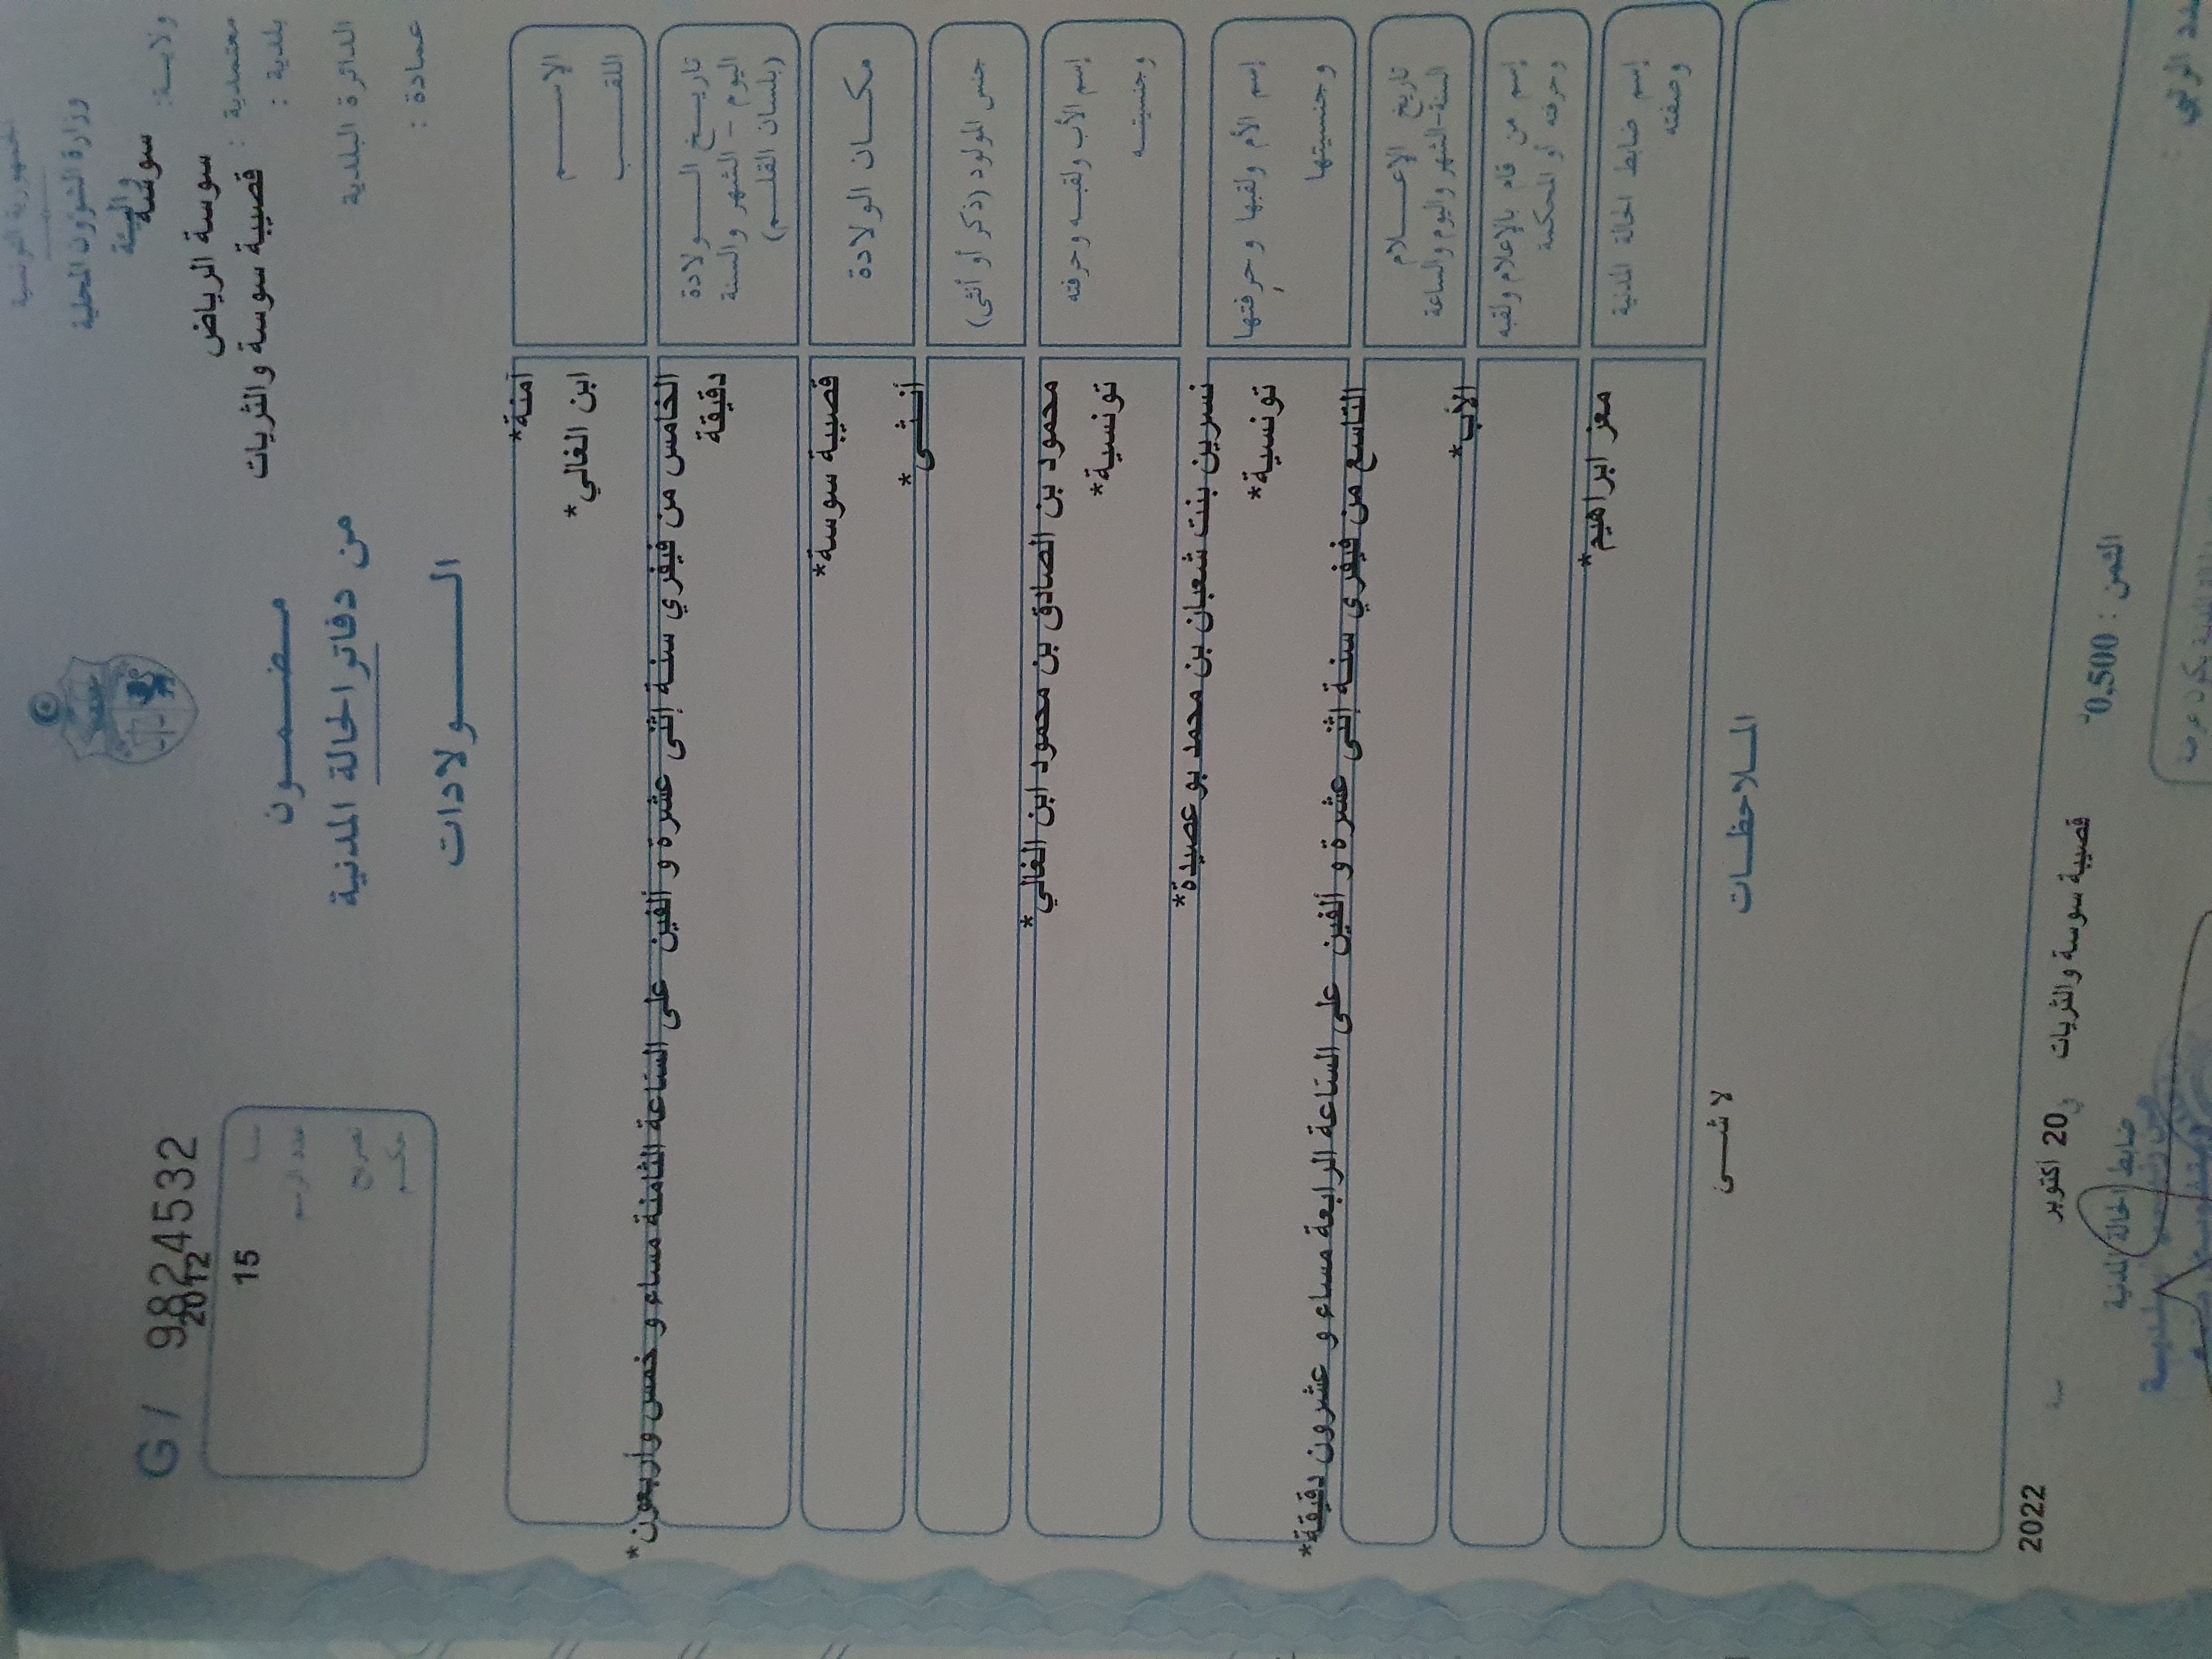 الجمهورية التونسية
وزارة الشؤون المحلية
والبيئة
ولاية: سوسة
معتمدية : سوسة الرياض
بلدية : قصيبة سوسة والثريات
الدائرة البلدية
عمادة :
G / 9824532
2012
عدد الرسم 15
تصريح
حكم
مضمون
من دفاتر الحالة المدنية
الولادات
الإسم آمنة*
اللقب ابن الغالي*
تاريخ الولادة الخامس من فيفري سنة إثنى عشرة و ألفين على الساعة الثامنة مساء و خمس وأربعون*
اليوم - الشهر والسنة دقيقة
(بلسان القلم)
مكان الولادة قصيبة سوسة*
جنس المولود (ذكر أو أنثى) أنثى*
إسم الأب ولقبه وحرفته محمود بن الصادق بن محمود ابن الغالي*
وجنسيته تونسية*
إسم الأم ولقبها وحرفتها نسرين بنت شعبان بن محمد بوعصيدة*
وجنسيتها تونسية*
تاريخ الإعلام التاسع من فيفري سنة إثنى عشرة و ألفين على الساعة الرابعة مساء و عشرون دقيقة*
السنة-الشهر واليوم والساعة
إسم من قام بالإعلام ولقبه الأب*
وحرفته أو المحكمة
إسم ضابط الحالة المدنية معز ابراهيم*
وصفته
الملاحظات
لا شئ
قصيبة سوسة والثريات في 20 أكتوبر 2022
الثمن : 0,500د
ضابط الحالة المدنية